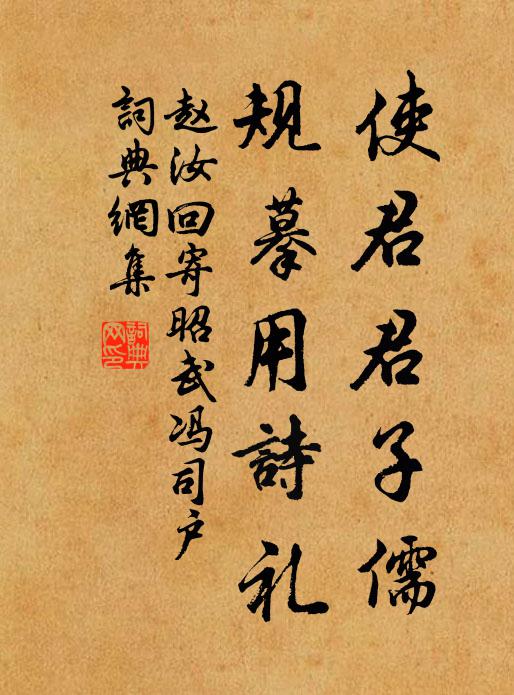 使君君子儒
規摹用詩礼
赵汝回寄昭武冯司户
詞典網集
詞典网印